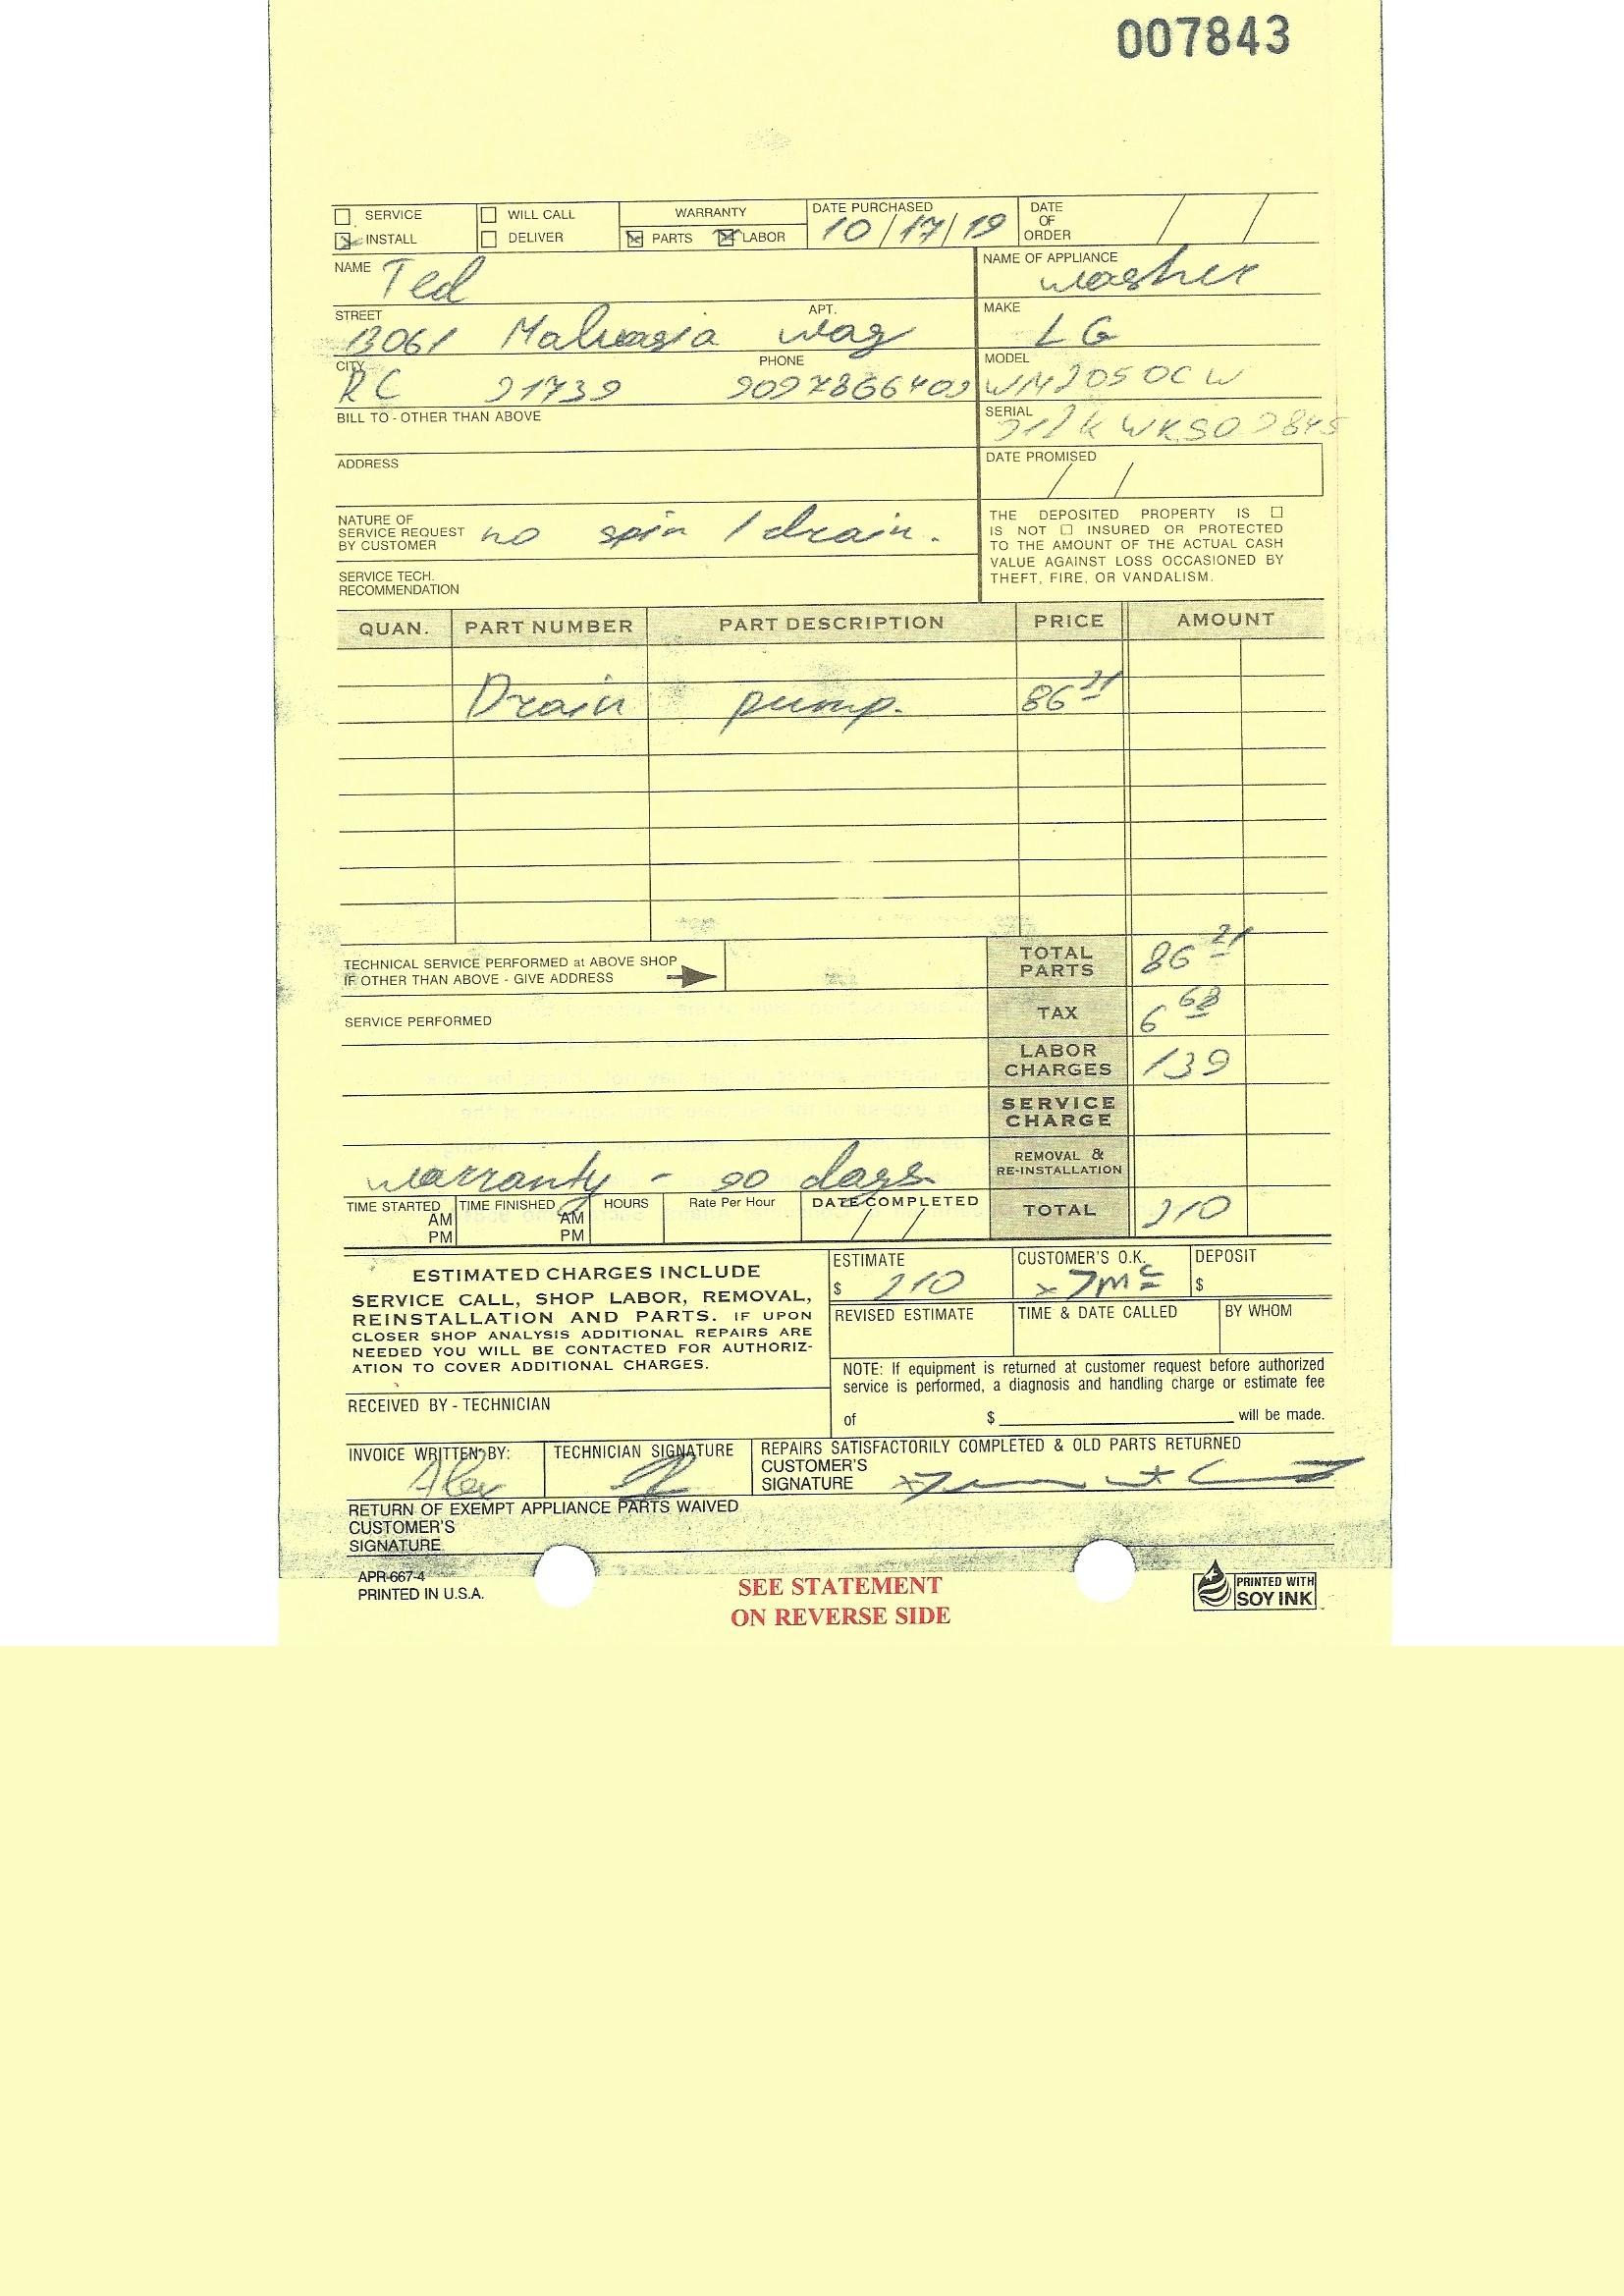 007843
SERVICE WILL CALL WARRANTY DATE PURCHASED 10/17/19 DATE OF ORDER / /
INSTALL DELIVER PARTS LABOR
NAME Ted NAME OF APPLIANCE washer
STREET 13061 Malvasia way APT. MAKE LG
CITY RC 91739 PHONE 9097866409 MODEL WM2050CW
BILL TO - OTHER THAN ABOVE SERIAL
ADDRESS DATE PROMISED / /
NATURE OF SERVICE REQUEST BY CUSTOMER no spin / drain.
THE DEPOSITED PROPERTY IS ☐
IS NOT ☐ INSURED OR PROTECTED
TO THE AMOUNT OF THE ACTUAL CASH
VALUE AGAINST LOSS OCCASIONED BY
THEFT, FIRE, OR VANDALISM.
SERVICE TECH. RECOMMENDATION
QUAN. PART NUMBER PART DESCRIPTION PRICE AMOUNT
Drain pump. 86 21
TECHNICAL SERVICE PERFORMED at ABOVE SHOP
IF OTHER THAN ABOVE - GIVE ADDRESS
TOTAL PARTS 86 21
SERVICE PERFORMED
TAX 6 68
LABOR CHARGES 139
SERVICE CHARGE
REMOVAL & RE-INSTALLATION
warranty - 90 days
TIME STARTED AM PM TIME FINISHED AM PM HOURS Rate Per Hour DATE COMPLETED / / TOTAL 210
ESTIMATED CHARGES INCLUDE
SERVICE CALL, SHOP LABOR, REMOVAL,
REINSTALLATION AND PARTS. IF UPON
CLOSER SHOP ANALYSIS ADDITIONAL REPAIRS ARE
NEEDED YOU WILL BE CONTACTED FOR AUTHORIZ-
ATION TO COVER ADDITIONAL CHARGES.
ESTIMATE $ 210 CUSTOMER'S O.K. DEPOSIT $
REVISED ESTIMATE TIME & DATE CALLED BY WHOM
NOTE: If equipment is returned at customer request before authorized
service is performed, a diagnosis and handling charge or estimate fee
of $ will be made.
RECEIVED BY - TECHNICIAN
INVOICE WRITTEN BY: Alex TECHNICIAN SIGNATURE REPAIRS SATISFACTORILY COMPLETED & OLD PARTS RETURNED
CUSTOMER'S
SIGNATURE
RETURN OF EXEMPT APPLIANCE PARTS WAIVED
CUSTOMER'S
SIGNATURE
APR-667-4
PRINTED IN U.S.A.
SEE STATEMENT
ON REVERSE SIDE
PRINTED WITH
SOY INK